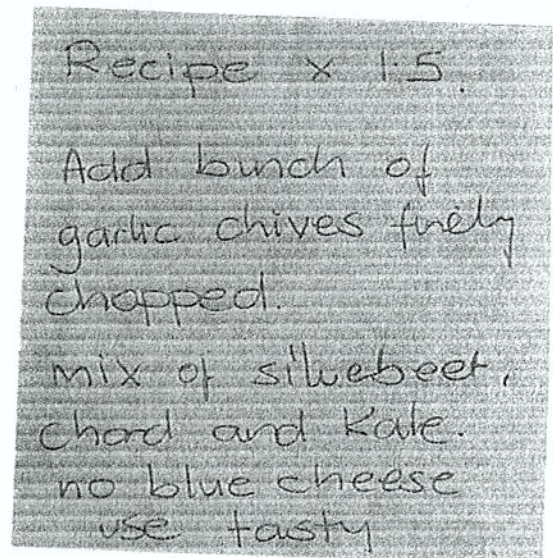 Recipe x 1.5.
Add bunch of
garlic chives finely
chopped.
mix of silvebeet,
chord and Kale.
no blue cheese
use tasty